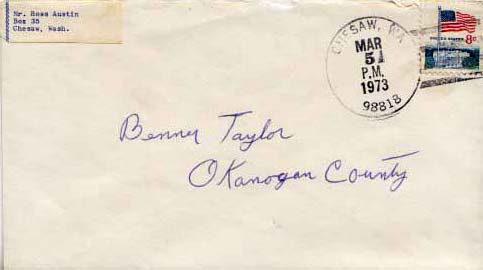 Mr. Ross Austin
Box 35
Chesaw, Wash.
CHESAW, WA
MAR
5
P.M.
1973
98818
UNITED STATES 8c
Benner Taylor
Okanogan County